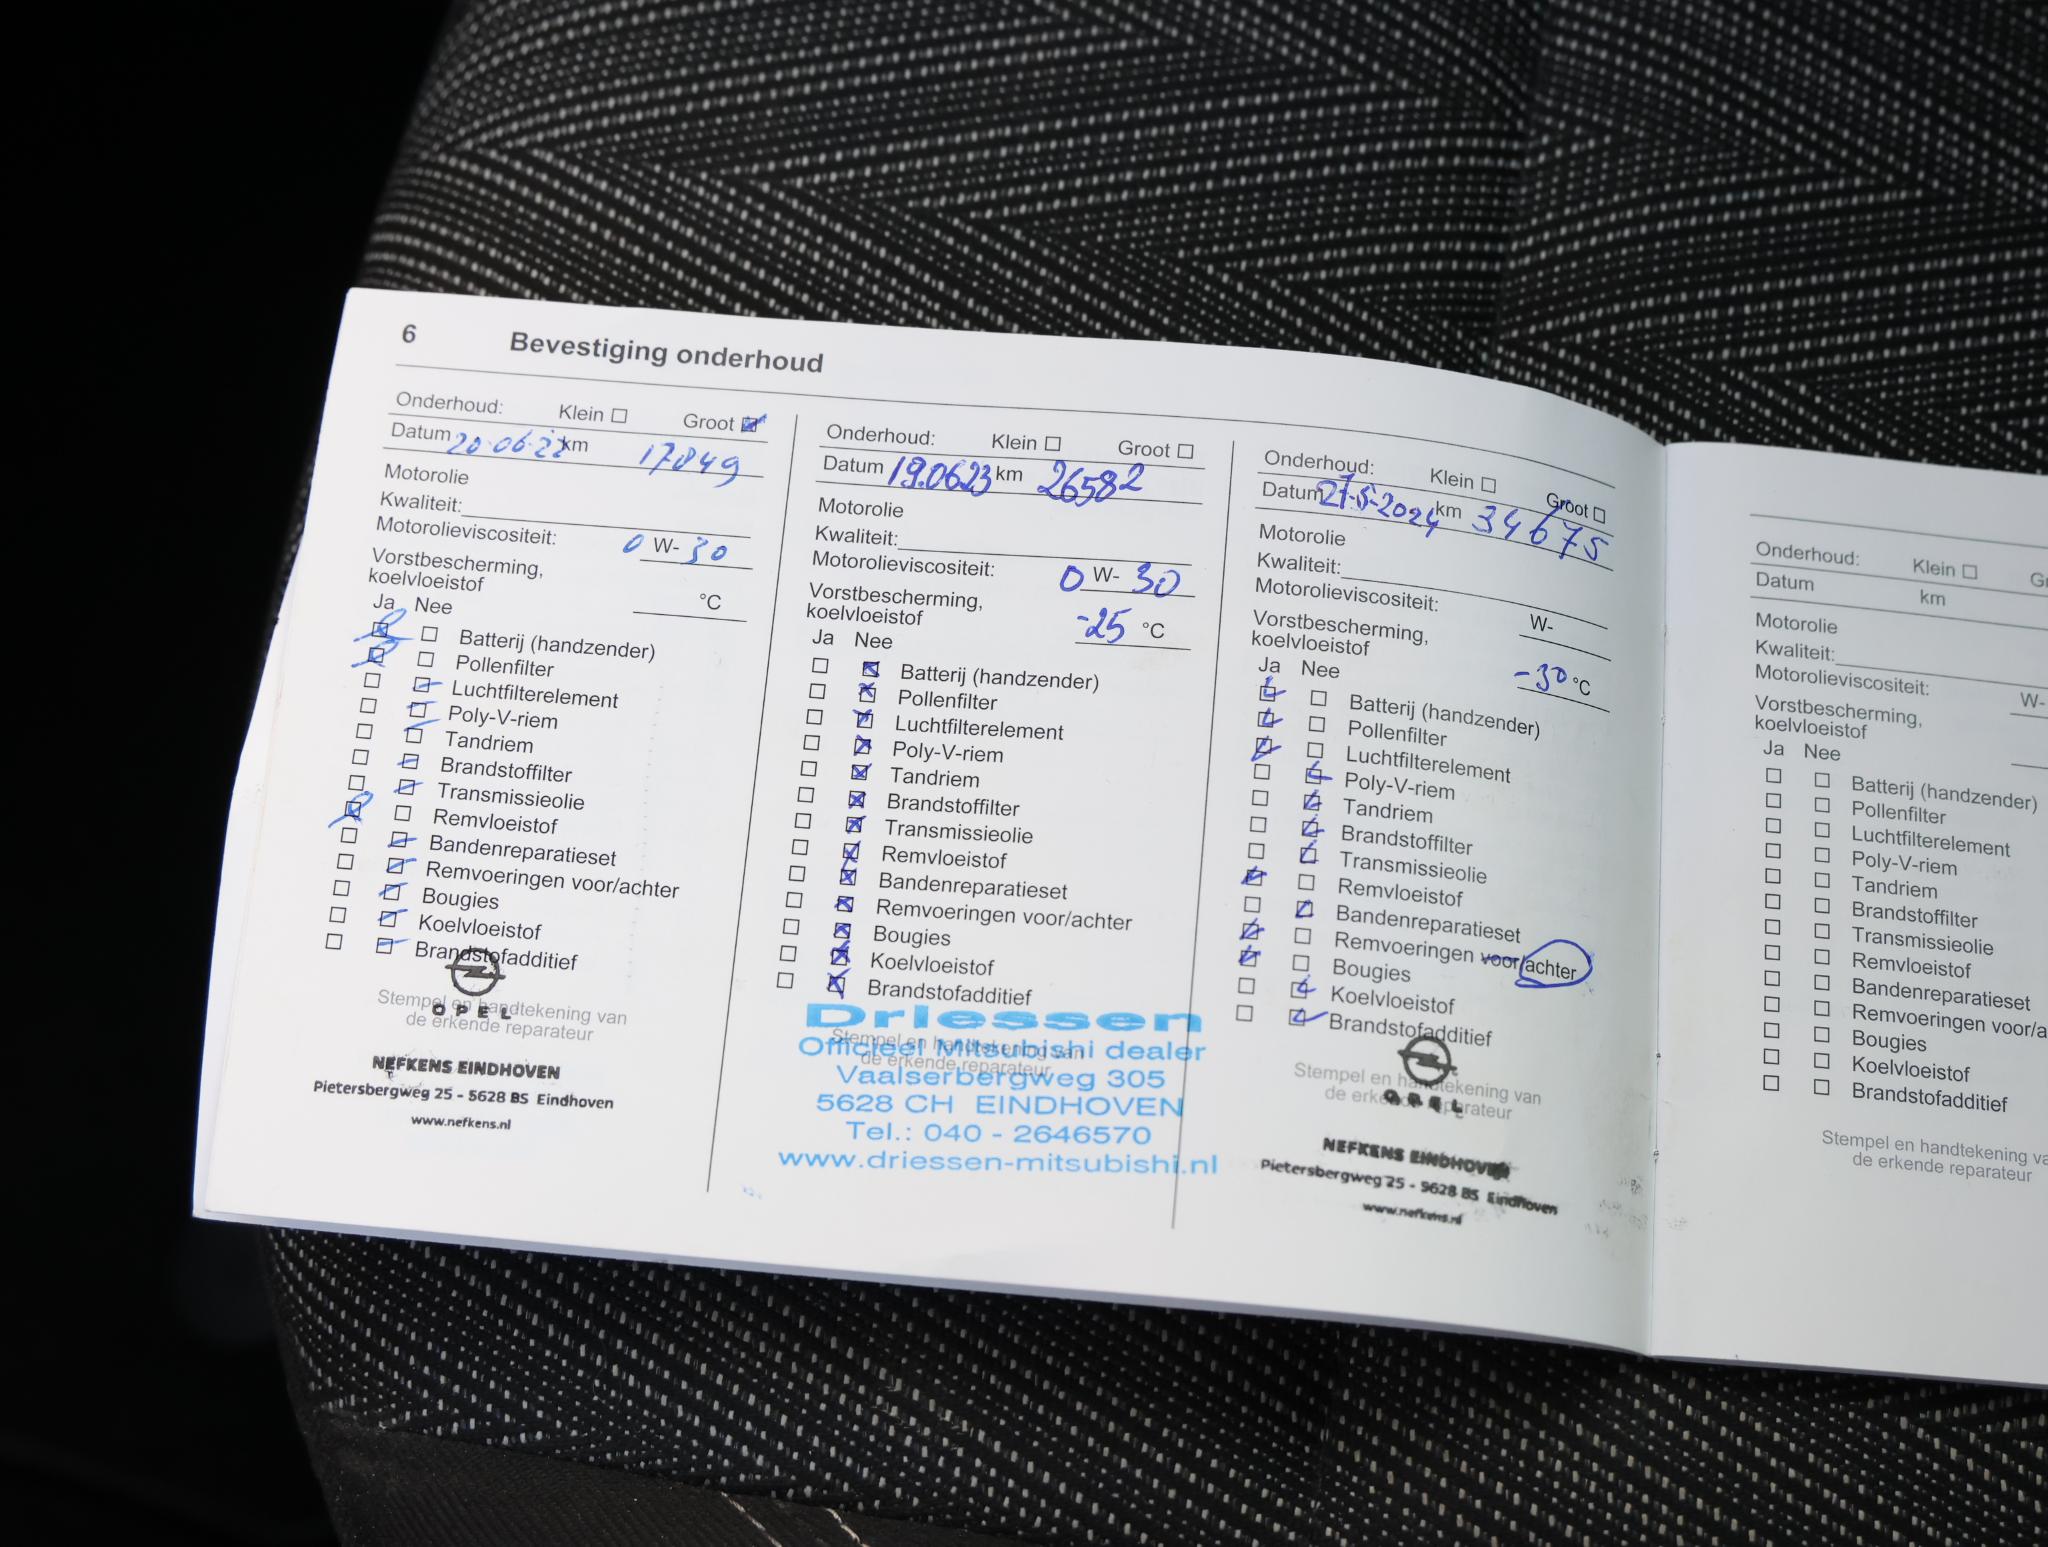 6 Bevestiging onderhoud
Onderhoud: Klein Groot
Datum 20-06-22 km 17849
Motorolie
Kwaliteit:
Motorolieviscositeit: 0 W- 30
Vorstbescherming,
koelvloeistof °C
Ja Nee
Batterij (handzender)
Pollenfilter
Luchtfilterelement
Poly-V-riem
Tandriem
Brandstoffilter
Transmissieolie
Remvloeistof
Bandenreparatieset
Remvoeringen voor/achter
Bougies
Koelvloeistof
Brandstofadditief
Stempel en handtekening van
de erkende reparateur
OPEL
NEFKENS EINDHOVEN
Pietersbergweg 25 - 5628 BS Eindhoven
www.nefkens.nl
Onderhoud: Klein Groot
Datum 19.0623 km 26582
Motorolie
Kwaliteit:
Motorolieviscositeit: 0 W- 30
Vorstbescherming,
koelvloeistof -25 °C
Ja Nee
Batterij (handzender)
Pollenfilter
Luchtfilterelement
Poly-V-riem
Tandriem
Brandstoffilter
Transmissieolie
Remvloeistof
Bandenreparatieset
Remvoeringen voor/achter
Bougies
Koelvloeistof
Brandstofadditief
Stempel en handtekening van
de erkende reparateur
Driessen
Officieel Mitsubishi dealer
Vaalserbergweg 305
5628 CH EINDHOVEN
Tel.: 040 - 2646570
www.driessen-mitsubishi.nl
Onderhoud: Klein Groot
Datum 27-5-2024 km 34675
Motorolie
Kwaliteit:
Motorolieviscositeit: W-
Vorstbescherming,
koelvloeistof -30 °C
Ja Nee
Batterij (handzender)
Pollenfilter
Luchtfilterelement
Poly-V-riem
Tandriem
Brandstoffilter
Transmissieolie
Remvloeistof
Bandenreparatieset
Remvoeringen voor/achter
Bougies
Koelvloeistof
Brandstofadditief
Stempel en handtekening van
de erkende reparateur
OPEL
NEFKENS EINDHOVEN
Pietersbergweg 25 - 5628 BS Eindhoven
www.nefkens.nl
Onderhoud: Klein Gr
Datum km
Motorolie
Kwaliteit:
Motorolieviscositeit: W-
Vorstbescherming,
koelvloeistof
Ja Nee
Batterij (handzender)
Pollenfilter
Luchtfilterelement
Poly-V-riem
Tandriem
Brandstoffilter
Transmissieolie
Remvloeistof
Bandenreparatieset
Remvoeringen voor/a
Bougies
Koelvloeistof
Brandstofadditief
Stempel en handtekening va
de erkende reparateur